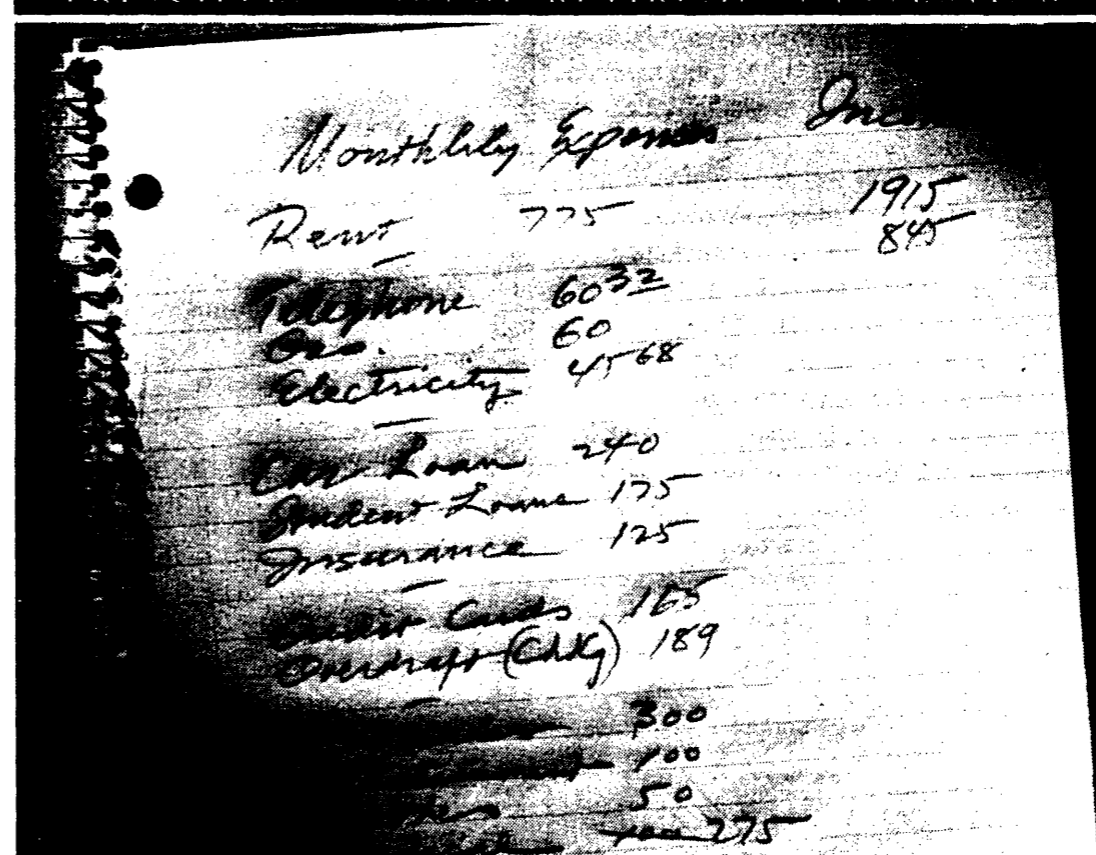 Monthlily Expenses
Rent 775 1915
845
Telephone 60 32
Gas. 60
Electricity 45 68
Car Loan 240
Student Loans 175
Insurance 125
Credit Cards 165
Overdraft (Chkg) 189
300
100
50
275